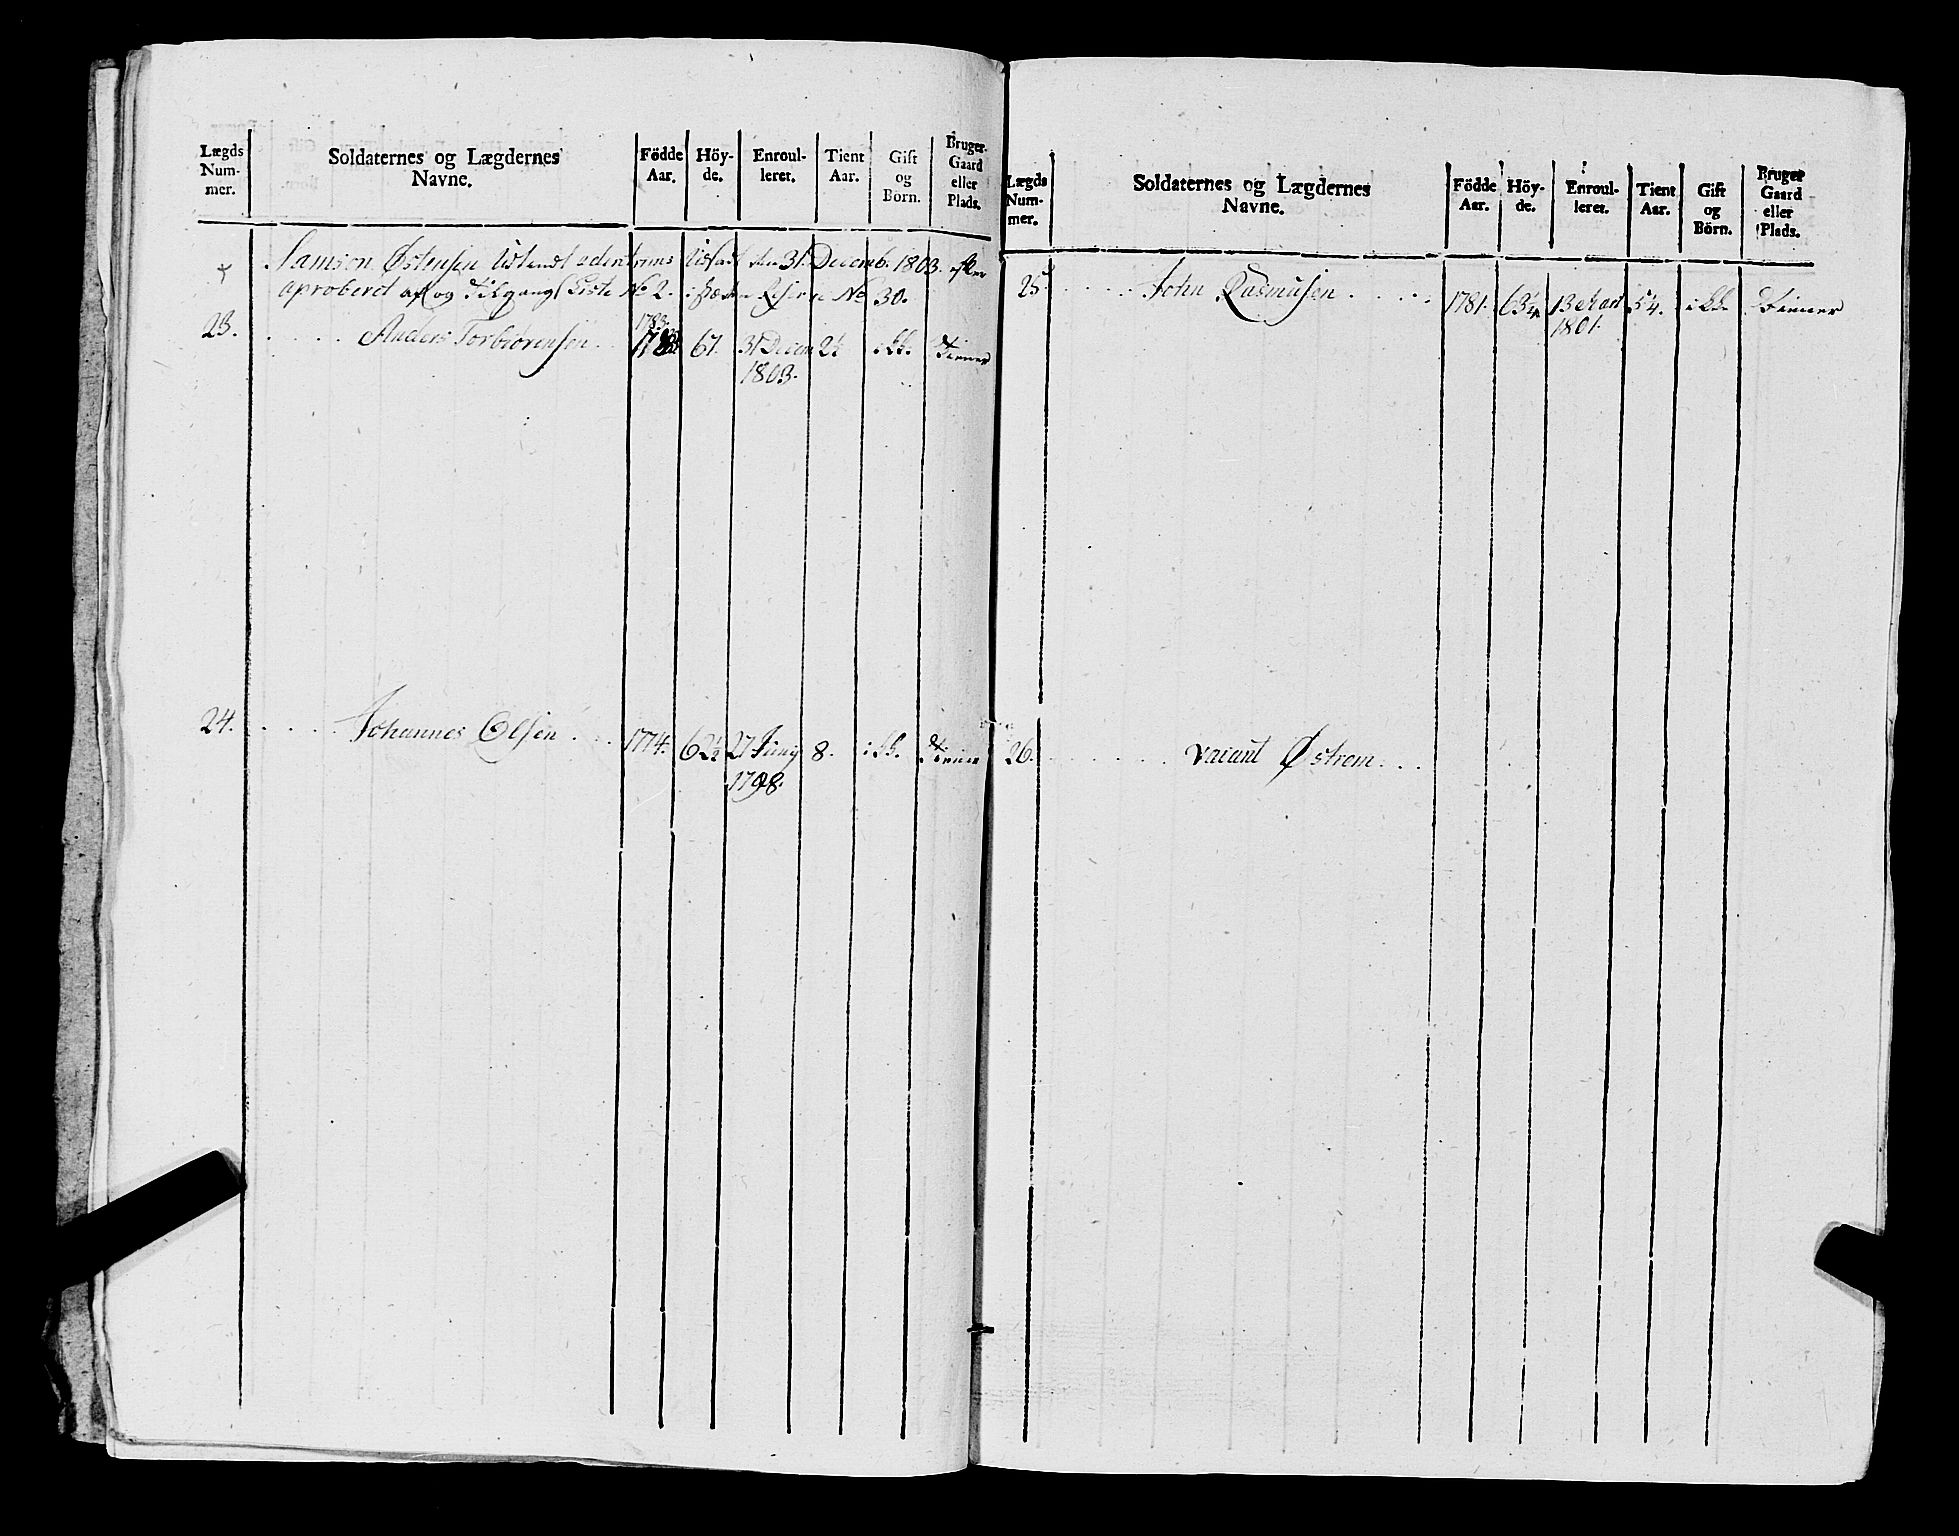 Lægds Num- mer.
Soldaternes og Lægdernes Navne.
Födde Aar.
Höy- de.
Enroul- leret.
Tient Aar.
Gift og Börn.
Bruger Gaard eller Plads.
Samson Østensen Udtient den 31. Decemb. 1803. efter
aproberet af og Tilgangs Liste No 2. No 30.
23. Anders Torbiørensen 1783. 67. 31 Decem 2½ ikk. Tiener
1803.
24. Johannes Olsen 1774. 62½ 27 Juny 8. ikk. Tiener
1798.
Lægds Num- mer.
Soldaternes og Lægdernes Navne.
Födde Aar.
Höy- de.
Enroul- leret.
Tient Aar.
Gift og Börn.
Bruger Gaard eller Plads.
25. John Rasmusen 1781. 63¼ 13 Mart 5¼. ikk. Tiener
1801.
26. Vacant Østrem